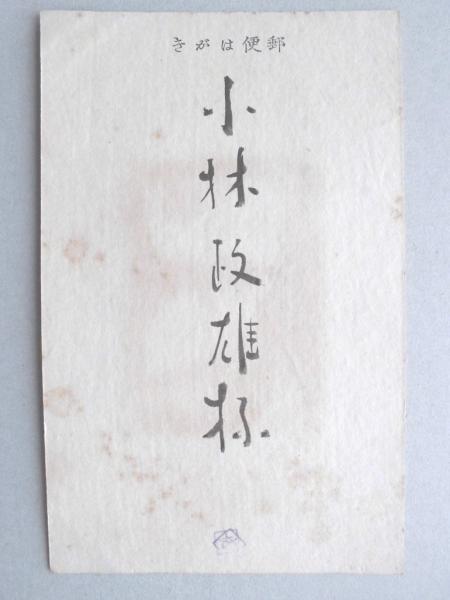 郵便はがき
小林政雄様